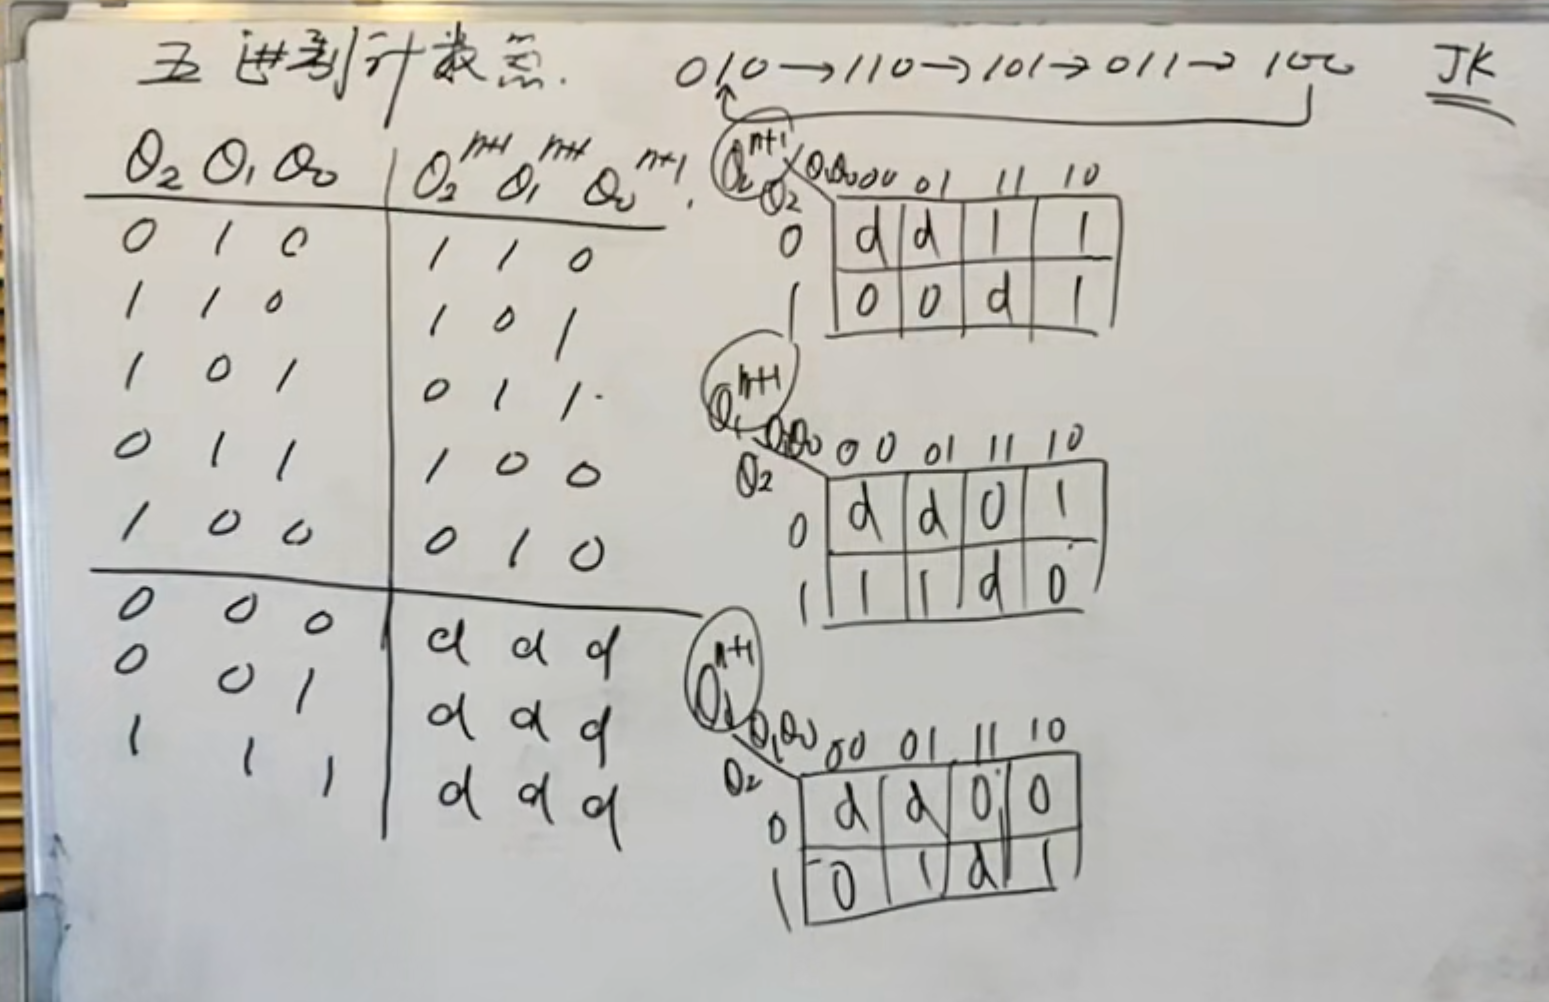 五进制计数器. 010→110→101→011→100 JK
Q2 Q1 Q0 Q2^n+1 Q1^n+1 Q0^n+1
0 1 0 1 1 0
1 1 0 1 0 1
1 0 1 0 1 1
0 1 1 1 0 0
1 0 0 0 1 0
0 0 0 d d d
0 0 1 d d d
1 1 1 d d d
Q2^n+1 Q1Q0 00 01 11 10
Q2
0 d d 1 1
1 0 0 d 1
Q1^n+1 Q1Q0 00 01 11 10
Q2
0 d d 0 1
1 1 1 d 0
n+1 Q1Q0 00 01 11 10
Q2
0 d d 0 0
1 0 1 d 1